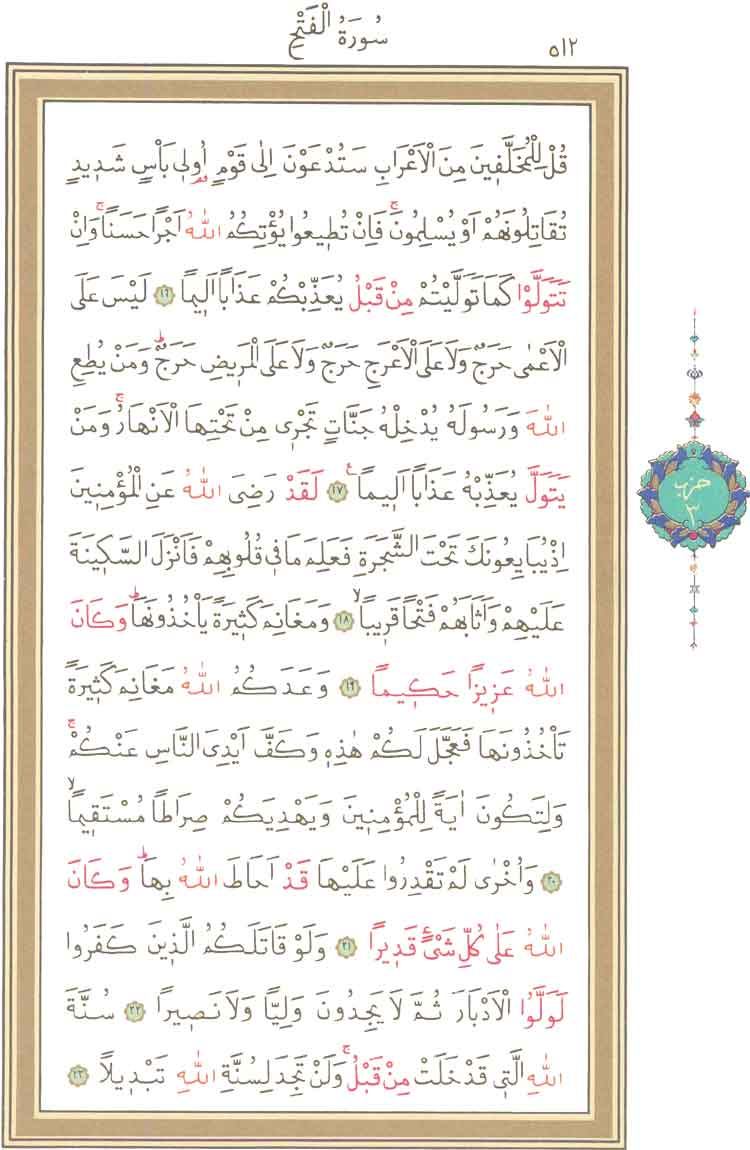 سُورَةُ الْفَتْحِ
٥١٢
قُلْ لِلْمُخَلَّف۪ينَ مِنَ الْاَعْرَابِ سَتُدْعَوْنَ اِلٰى قَوْمٍ اُو۬ل۪ي بَأْسٍ شَد۪يدٍ
تُقَاتِلُونَهُمْ اَوْ يُسْلِمُونَۚ فَاِنْ تُط۪يعُوا يُؤْتِكُمُ اللّٰهُ اَجْرًا حَسَنًاۚ وَاِنْ
تَتَوَلَّوْا كَمَا تَوَلَّيْتُمْ مِنْ قَبْلُ يُعَذِّبْكُمْ عَذَابًا اَل۪يمًا ﴿١٦﴾ لَيْسَ عَلَى
الْاَعْمٰى حَرَجٌ وَلَا عَلَى الْاَعْرَجِ حَرَجٌ وَلَا عَلَى الْمَر۪يضِ حَرَجٌۜ وَمَنْ يُطِعِ
اللّٰهَ وَرَسُولَهُ يُدْخِلْهُ جَنَّاتٍ تَجْر۪ي مِنْ تَحْتِهَا الْاَنْهَارُۚ وَمَنْ
يَتَوَلَّ يُعَذِّبْهُ عَذَابًا اَل۪يمًا۟ ﴿١٧﴾ لَقَدْ رَضِيَ اللّٰهُ عَنِ الْمُؤْمِن۪ينَ
اِذْ يُبَايِعُونَكَ تَحْتَ الشَّجَرَةِ فَعَلِمَ مَا ف۪ي قُلُوبِهِمْ فَاَنْزَلَ السَّك۪ينَةَ
عَلَيْهِمْ وَاَثَابَهُمْ فَتْحًا قَر۪يبًاۙ ﴿١٨﴾ وَمَغَانِمَ كَث۪يرَةً يَأْخُذُونَهَاۜ وَكَانَ
اللّٰهُ عَز۪يزًا حَك۪يمًا ﴿١٩﴾ وَعَدَكُمُ اللّٰهُ مَغَانِمَ كَث۪يرَةً
تَأْخُذُونَهَا فَعَجَّلَ لَكُمْ هٰذِه۪ وَكَفَّ اَيْدِيَ النَّاسِ عَنْكُمْۚ
وَلِتَكُونَ اٰيَةً لِلْمُؤْمِن۪ينَ وَيَهْدِيَكُمْ صِرَاطًا مُسْتَق۪يمًاۙ
﴿٢٠﴾ وَاُخْرٰى لَمْ تَقْدِرُوا عَلَيْهَا قَدْ اَحَاطَ اللّٰهُ بِهَاۜ وَكَانَ
اللّٰهُ عَلٰى كُلِّ شَيْءٍ قَد۪يرًا ﴿٢١﴾ وَلَوْ قَاتَلَكُمُ الَّذ۪ينَ كَفَرُوا
لَوَلَّوُا الْاَدْبَارَ ثُمَّ لَا يَجِدُونَ وَلِيًّا وَلَا نَص۪يرًا ﴿٢٢﴾ سُنَّةَ
اللّٰهِ الَّت۪ي قَدْ خَلَتْ مِنْ قَبْلُۚ وَلَنْ تَجِدَ لِسُنَّةِ اللّٰهِ تَبْد۪يلًا ﴿٢٣﴾
حزب
٣